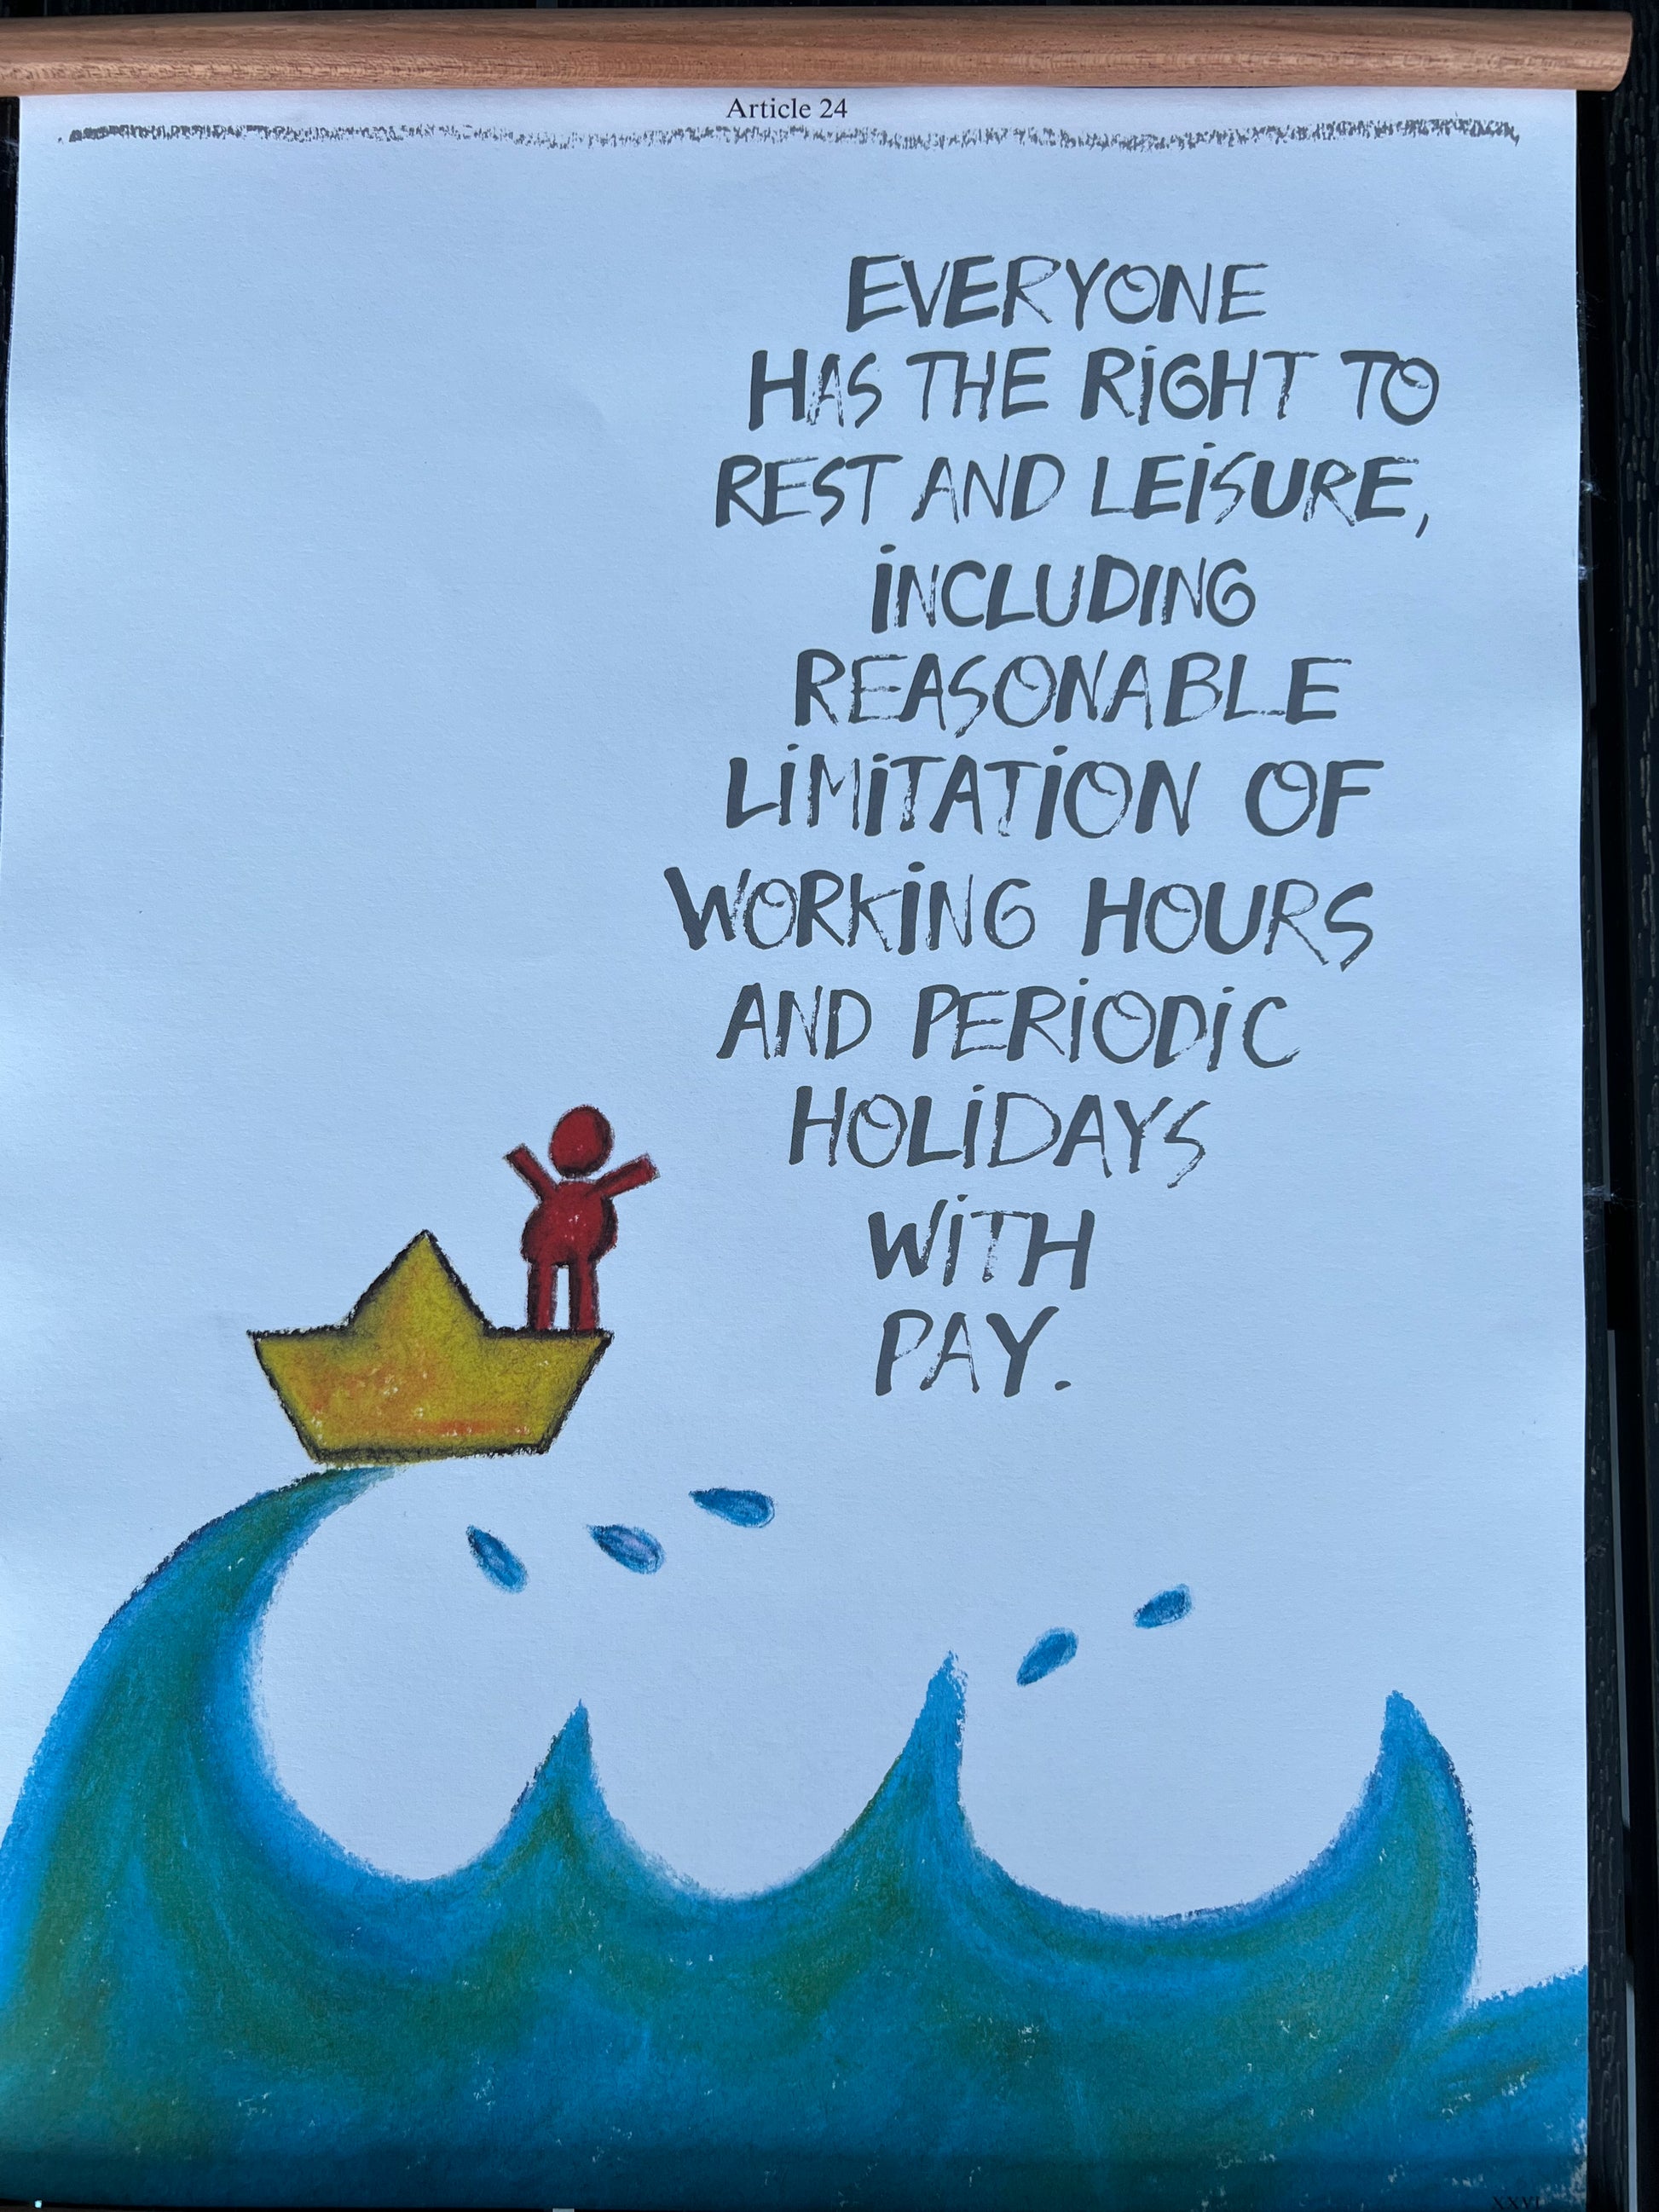 Article 24
EVERYONE
HAS THE RIGHT TO
REST AND LEISURE,
INCLUDING
REASONABLE
LIMITATION OF
WORKING HOURS
AND PERIODIC
HOLIDAYS
WITH
PAY.